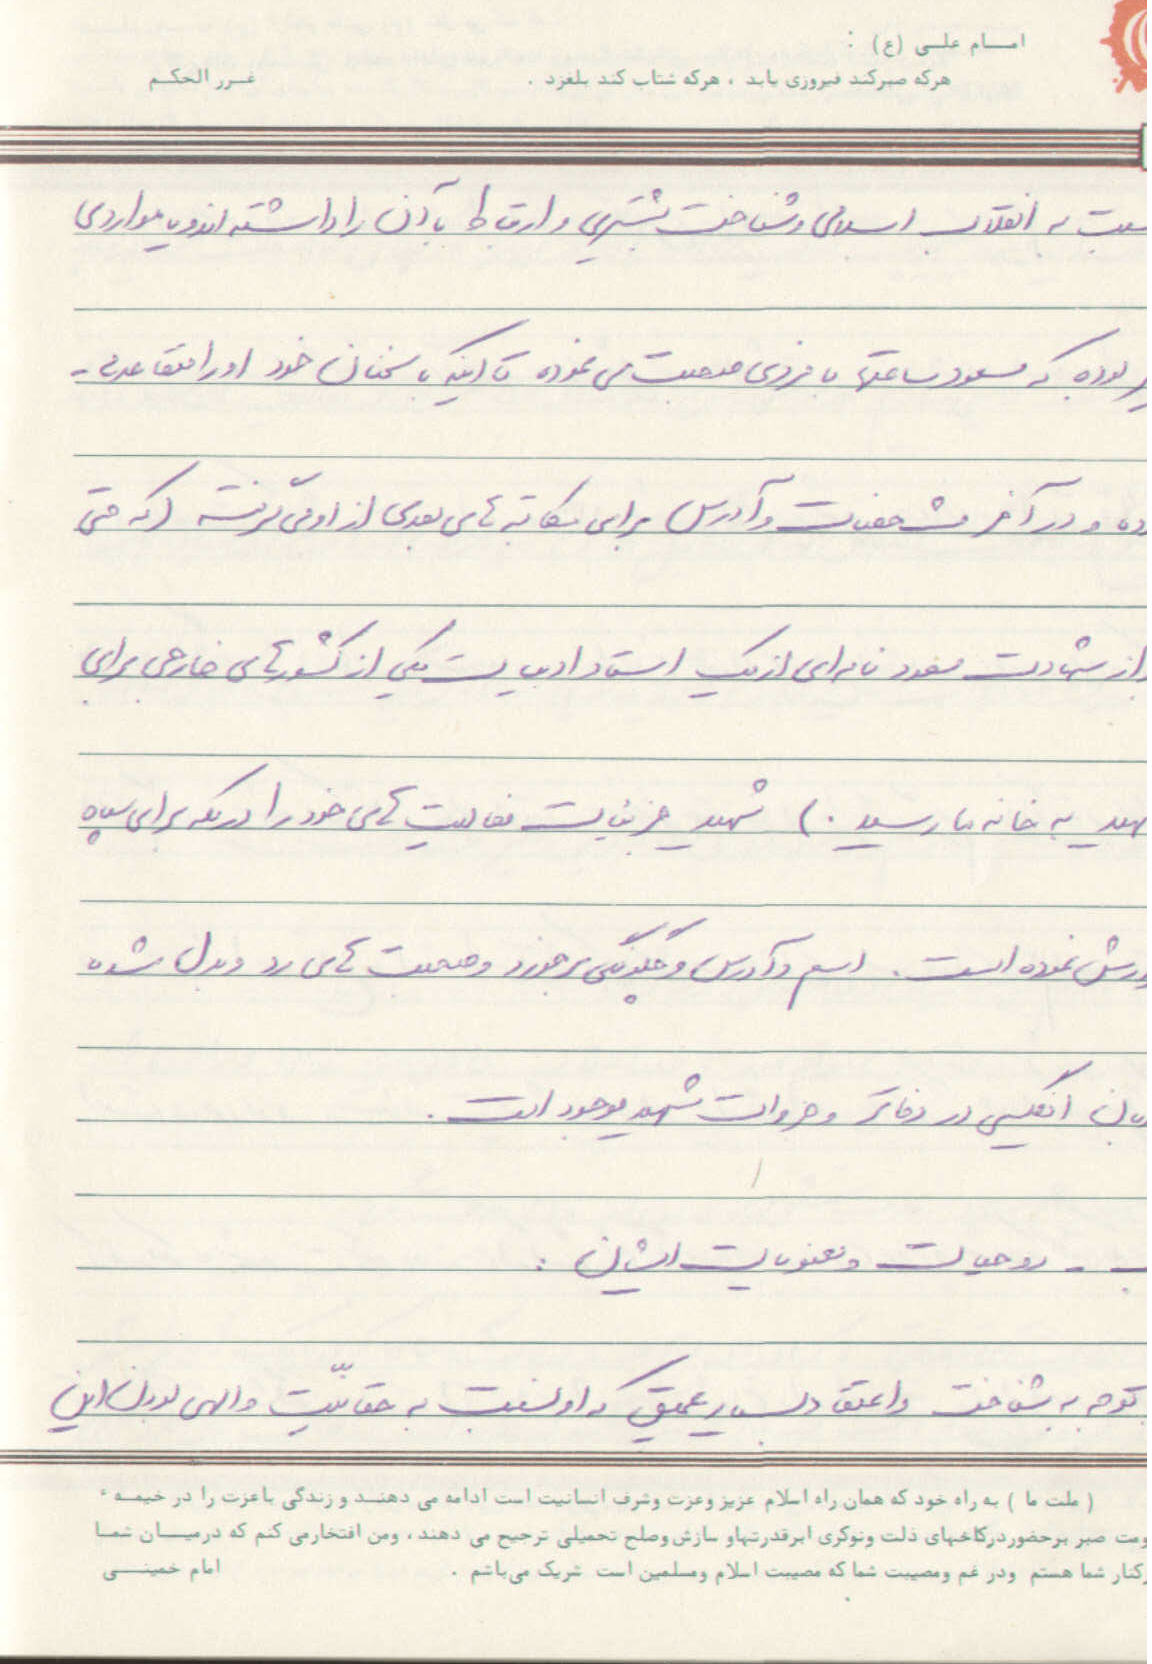 امـــام علــی (ع) :
هرکه صبرکند فیروزی یابد ، هرکه شتاب کند بلغزد . غــرر الحکـم
به انقلاب اسلامی وشناخت بیشتری و ارتباط با آن را داشته اند و یا مواردی
بوده که مسعود ساعتها با فردی صحبت می نموده تا اینکه با سخنان خود او را متقاعد می -
و در آخر مشخصات و آدرس برای مکاتبه های بعدی از او می گرفته (که حتی
از شهادت مسعود نامه ای از یک استاد ادبیات یکی از کشورهای خارجی برای
به خانه ما رسید .) شهید جزئیات فعالیت های خود را در مکه برای سپاه
نموده است . اسم و آدرس و چگونگی برخورد و صحبت های رد و بدل شده
انگلیسی در دفاتر و جزوات شهید موجود است .
ب - روحیات و معنویات ایشان :
توجه به شناخت و اعتقاد بسیار عمیقی که او نسبت به حقانیّت و الهی بودن این
( ملت ما ) به راه خود که همان راه اسلام عزیز وعزت وشرف انسانیت است ادامه می دهنـد و زندگی باعزت را در خیمـه ء
صبر برحضوردرکاخهای ذلت ونوکری ابرقدرتهاو سازش وصلح تحمیلی ترجیح می دهند ، ومن افتخارمی کنم که درمیــان شمـا
کنار شما هستم ودر غم ومصیبت شما که مصیبت اسلام ومسلمین است شریک می‌باشم . امام خمینــی